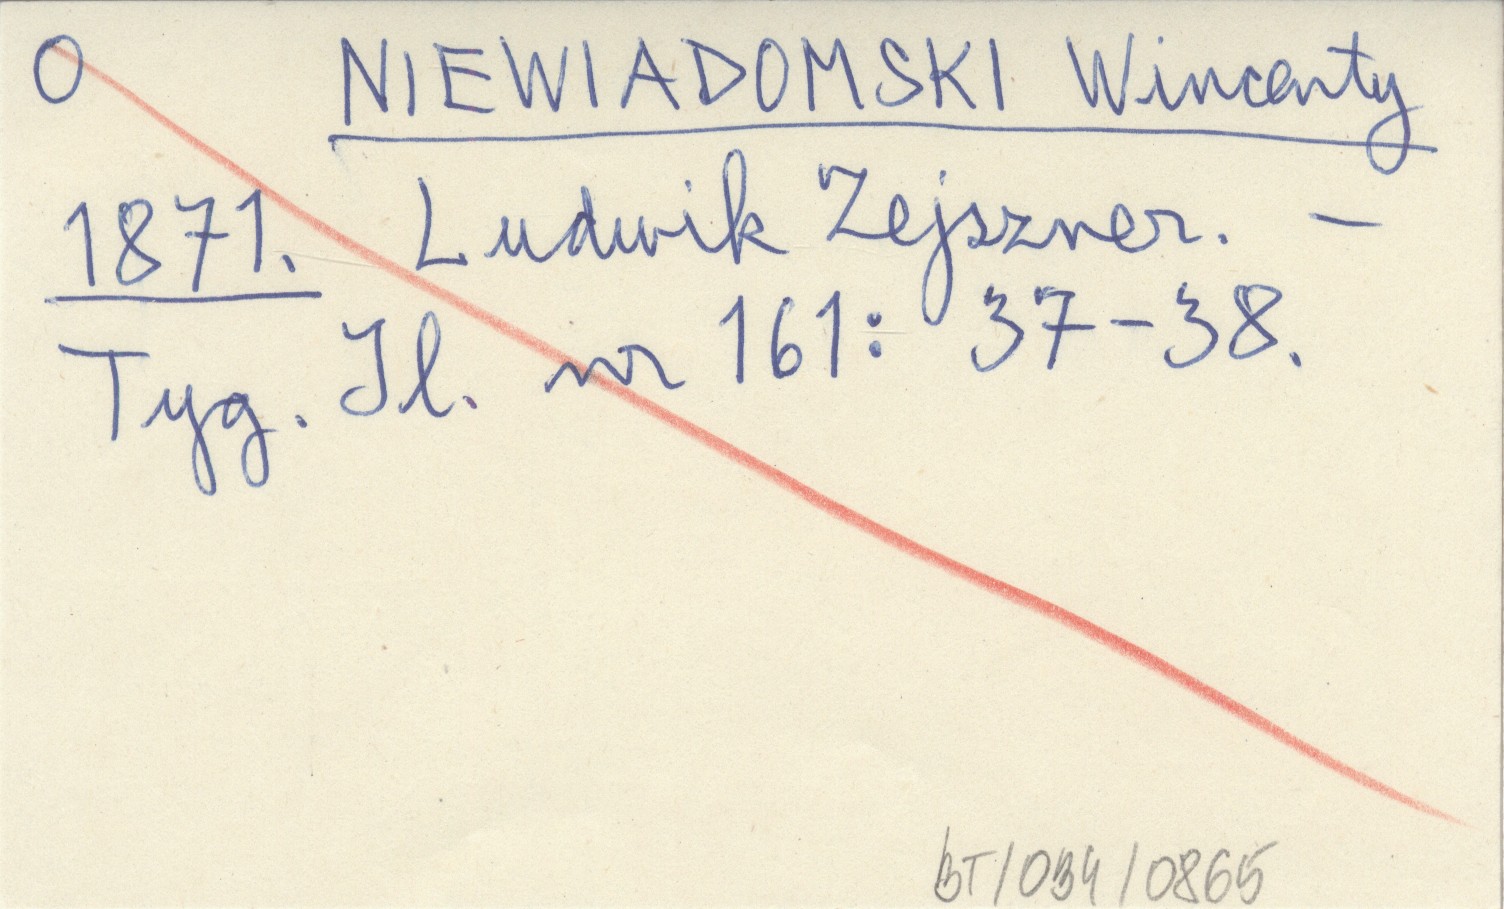 O NIEWIADOMSKI Wincenty
1871. Ludwik Zejszner. –
Tyg. Il. nr 161: 37-38.
BT/034/0865